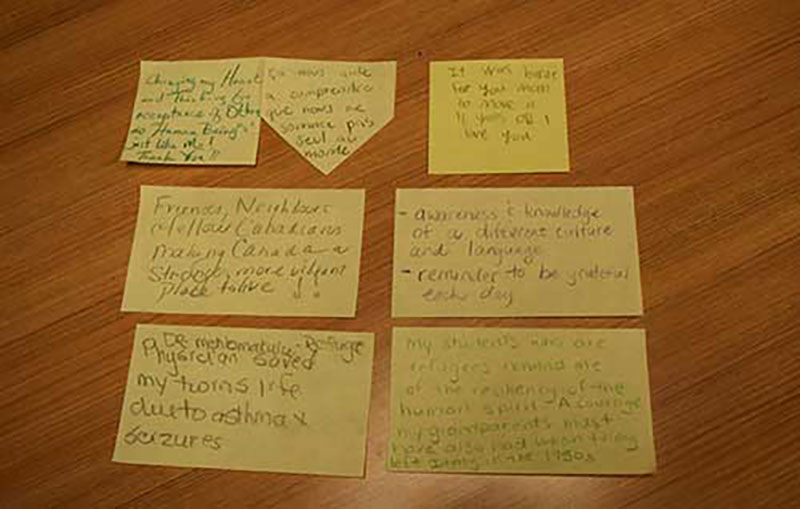 Changing my Heart
and Thinking for
acceptance of Others
as Human Being's
just like me!
Thank You!!
ça nous aide
a comprendre
que nous ne
somme pas
seul au
monde
It was
for you mom
to move
I
love you
Friends, Neighbours
& fellow Canadians
making Canada a
stronger, more vibrant
place to live !!
- awareness & knowledge
of a different culture
and language
- reminder to be grateful
each day
Dr. - Refuge
Physician saved
my twins life
due to asthma &
seizures
My students who are
refugees remind me
of the resiliency of the
human spirit - A courage
my grandparents must
have also had when they
left in the 1950s